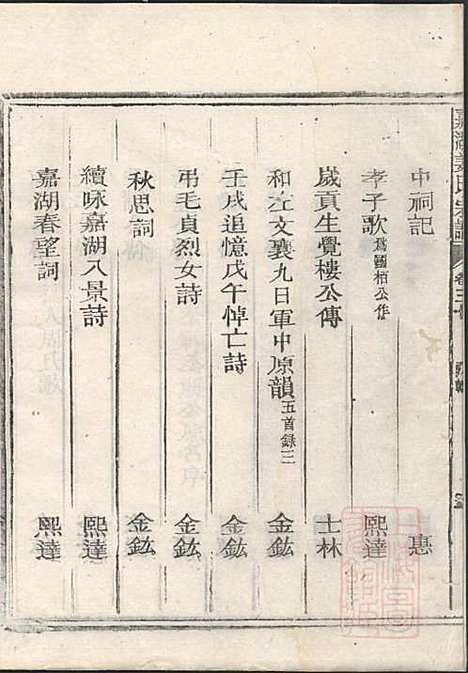 中祠記 惠
孝子歌 爲國栢公作 熙達
歲貢生覺樓公傳 士林
和左文襄九日軍中原韻 五首錄三 金鈜
壬戌追憶戊午悼亡詩 金鈜
弔毛貞烈女詩 金鈜
秋思詞 金鈜
續咏嘉湖八景詩 熙達
嘉湖春望詞 熙達